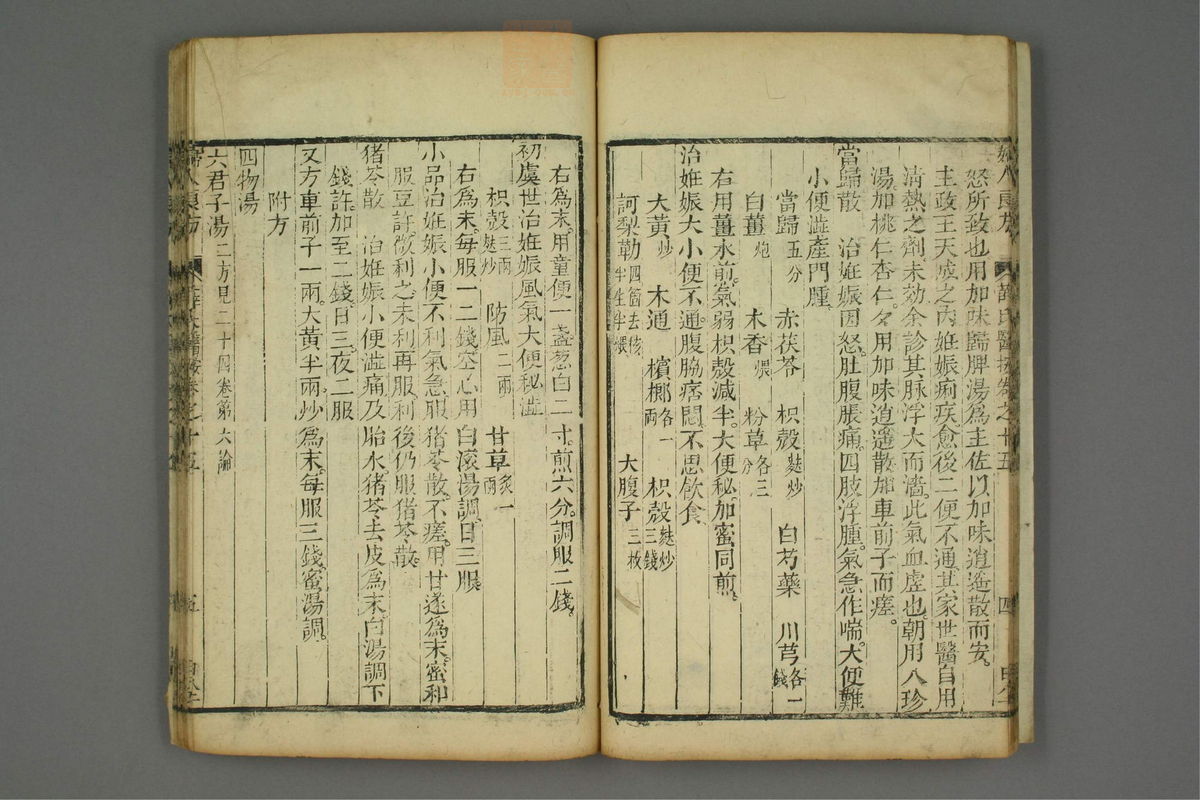 怒所致也用加味歸脾湯為主佐以加味逍遙散而安
主政王天成之內姙娠痢疾愈後二便不通其家世醫自用
清熱之劑未効余診其脉浮大而濇此氣血虛也朝用八珍
湯加桃仁杏仁夕用加味逍遥散加車前子而痊
當歸散　治姙娠因怒肚腹脹痛四肢浮腫氣急作喘大便難
小便澁產門腫
當歸五分　赤茯苓　枳殼麩炒　白芍藥　川芎各一錢
白薑炮　木香煨　粉草各三分
右用薑水煎氣弱枳殼減半大便秘加蜜同煎
治姙娠大小便不通腹脇痞悶不思飲食
大黃炒　木通　檳榔各一兩　枳殼麩炒三錢
訶梨勒四箇去核半生半煨　大腹子三枚
右爲末用童便一盞葱白二寸煎六分調服二錢
初虞世治姙娠風氣大便秘澁
枳殼三兩麩炒　防風二兩　甘草炙一兩
右爲末每服一二錢空心用白滚湯調日三服
小品治姙娠小便不利氣急服猪苓散不瘥用甘遂爲末蜜和
服豆許微利之未利再服利後仍服猪苓散
猪苓散　治姙娠小便澁痛及胎水猪苓去皮爲末白湯調下
錢許加至二錢日三夜二服
又方車前子一兩大黃半兩炒爲末每服三錢蜜湯調
附方
四物湯
六君子湯二方見二十四卷第六論